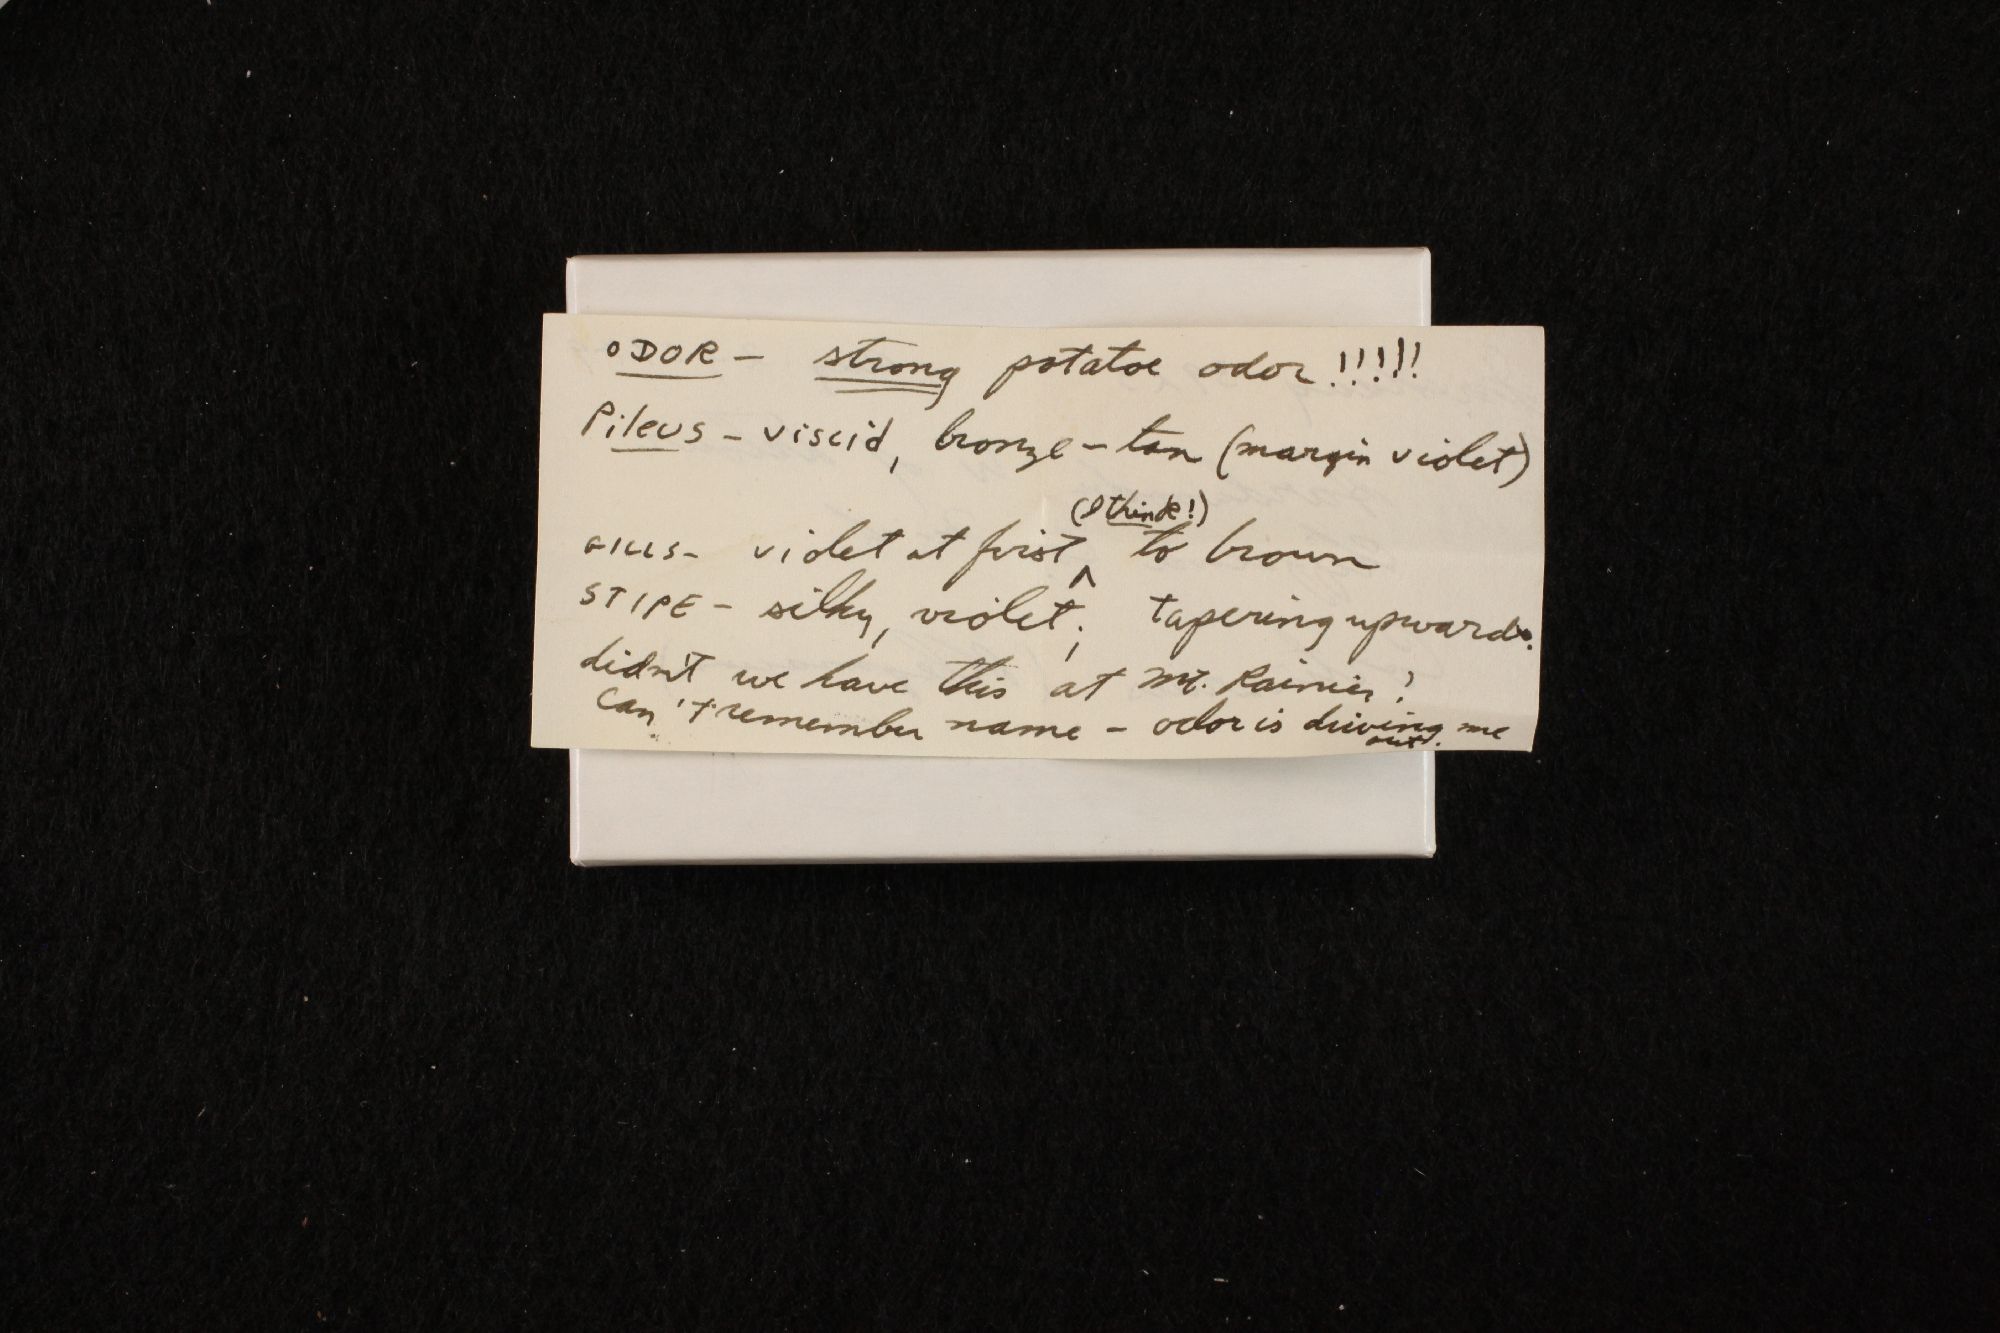 ODOR – strong potatoe odor!!!!!
Pileus – viscid, bronze – tan (margin violet)
(I think!)
GILLS – violet at first ^ to brown
STIPE – silky, violet; tapering upwards.
didn't we have this at Mt. Rainier?
Can't remember name – odor is driving me
out.